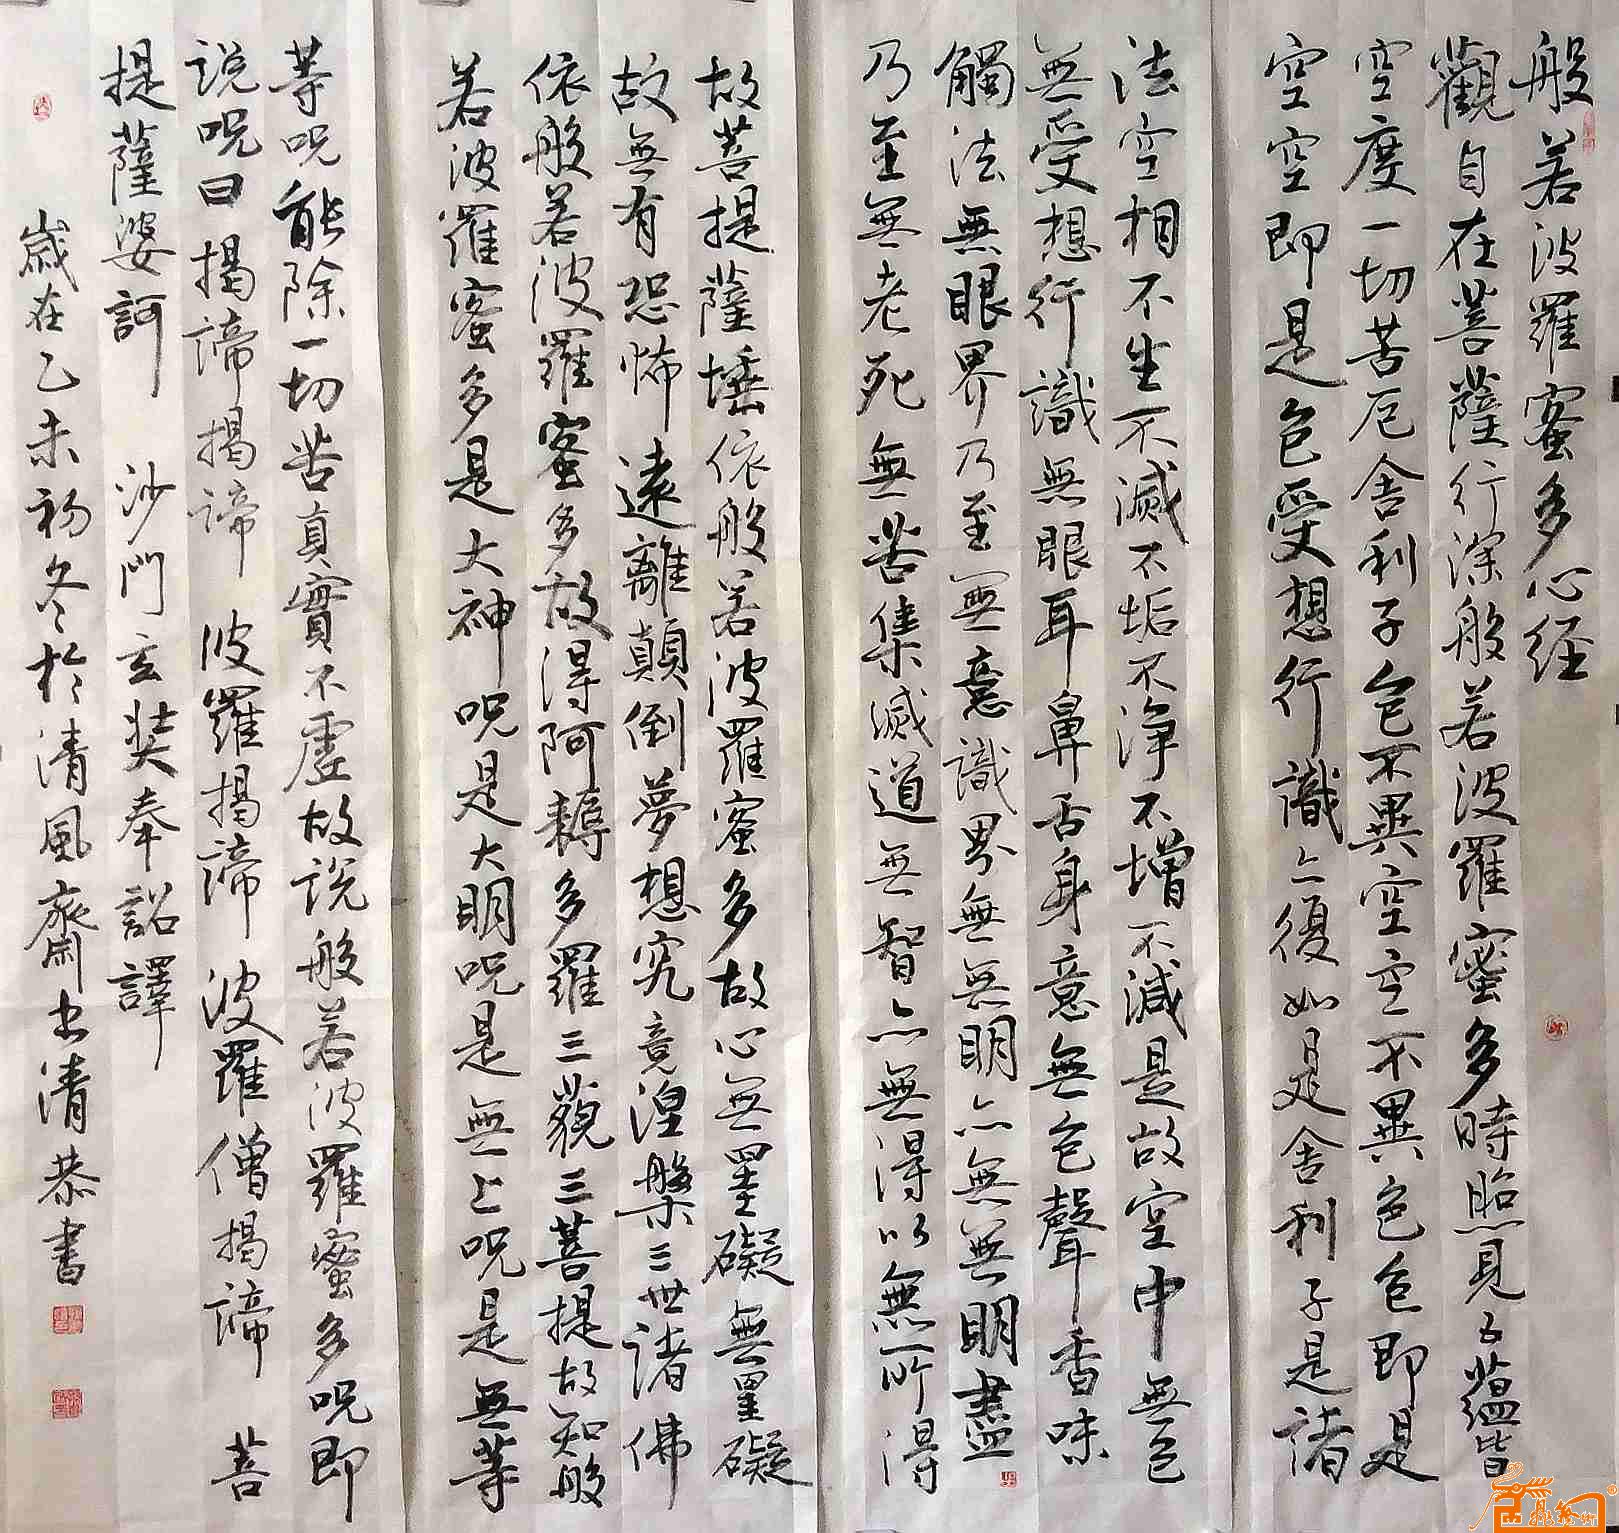 般若波羅蜜多心经
觀自在菩薩行深般若波羅蜜多時照見五蘊皆
空度一切苦厄舍利子色不異空空不異色色即是
空空即是色受想行識亦復如是舍利子是諸
法空相不生不滅不垢不净不增不減是故空中無色
無受想行識無眼耳鼻舌身意無色聲香味
觸法無眼界乃至無意識界無無明亦無無明盡
乃至無老死無苦集滅道無智亦無得以無所得
故菩提薩埵依般若波羅蜜多故心無罣礙無罣礙
故無有恐怖遠離顛倒夢想究竟涅槃三世諸佛
依般若波羅蜜多故得阿耨多羅三藐三菩提故知般
若波羅蜜多是大神呪是大明呪是無上呪是無等
等呪能除一切苦真實不虛故説般若波羅蜜多呪即
説呪曰揭諦揭諦 波羅揭諦 波羅僧揭諦 菩
提薩婆訶 沙門玄奘奉詔譯
歲在乙未初冬於清風齋清恭書